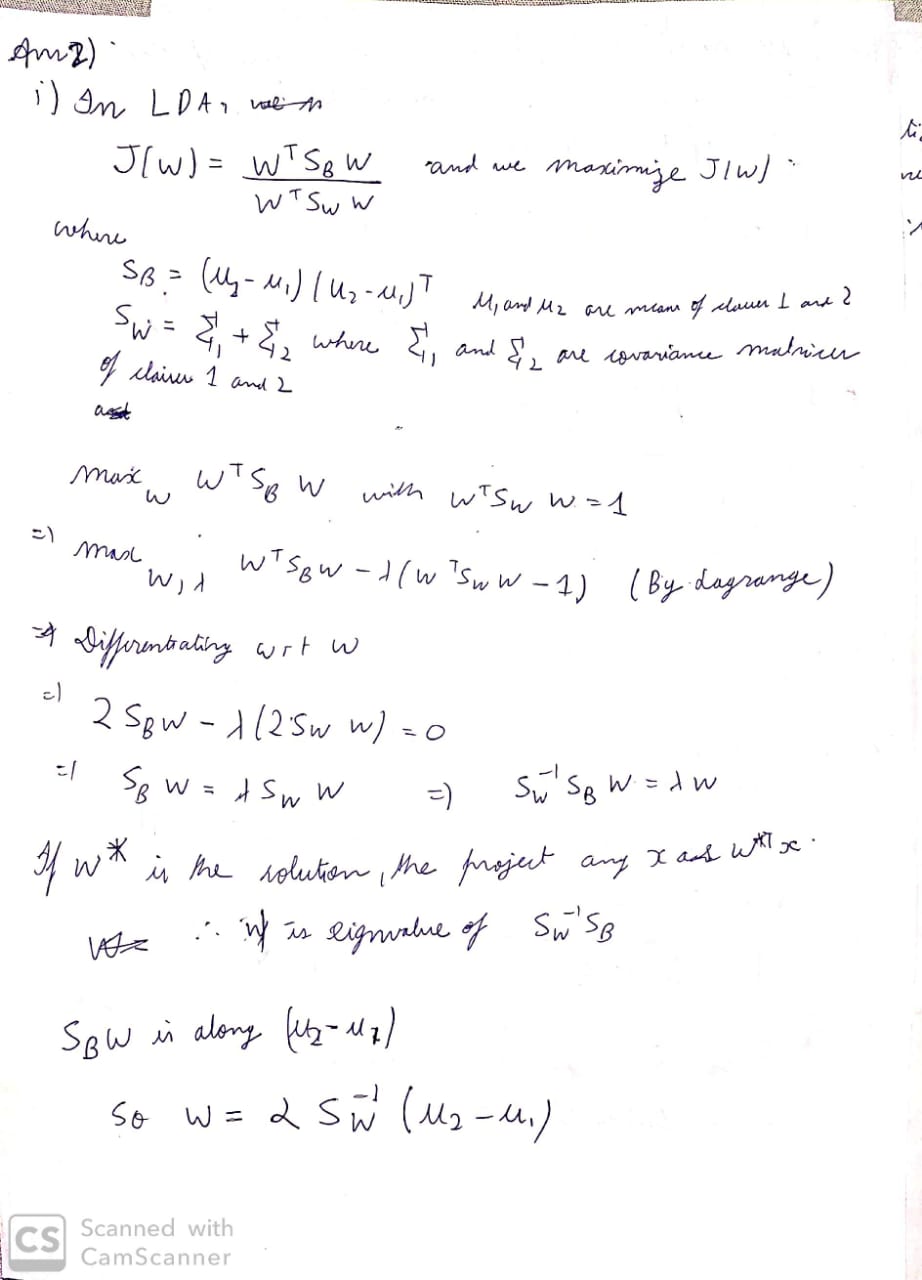 Ans2)
i) In LDA,
J(w) = W^T S_B W / W^T S_w W and we maximize J(w)
where
S_B = (μ_2 - μ_1) (μ_2 - μ_1)^T μ_1 and μ_2 are means of classes 1 and 2
S_w = Σ_1 + Σ_2 where Σ_1 and Σ_2 are covariance matrices
of classes 1 and 2
max_w W^T S_B W with W^T S_w W = 1
=) max_{w,λ} W^T S_B W - λ(W^T S_w W - 1) (By Lagrange)
=> Differentiating wrt w
=) 2 S_B W - λ(2 S_w W) = 0
=) S_B W = λ S_w W =) S_w^{-1} S_B W = λ W
If w* is the solution, the project any x as w*^T x.
∴ is eignvalue of S_w^{-1} S_B
S_B W is along (μ_2 - μ_1)
So W = α S_w^{-1} (μ_2 - μ_1)
CS Scanned with
CamScanner